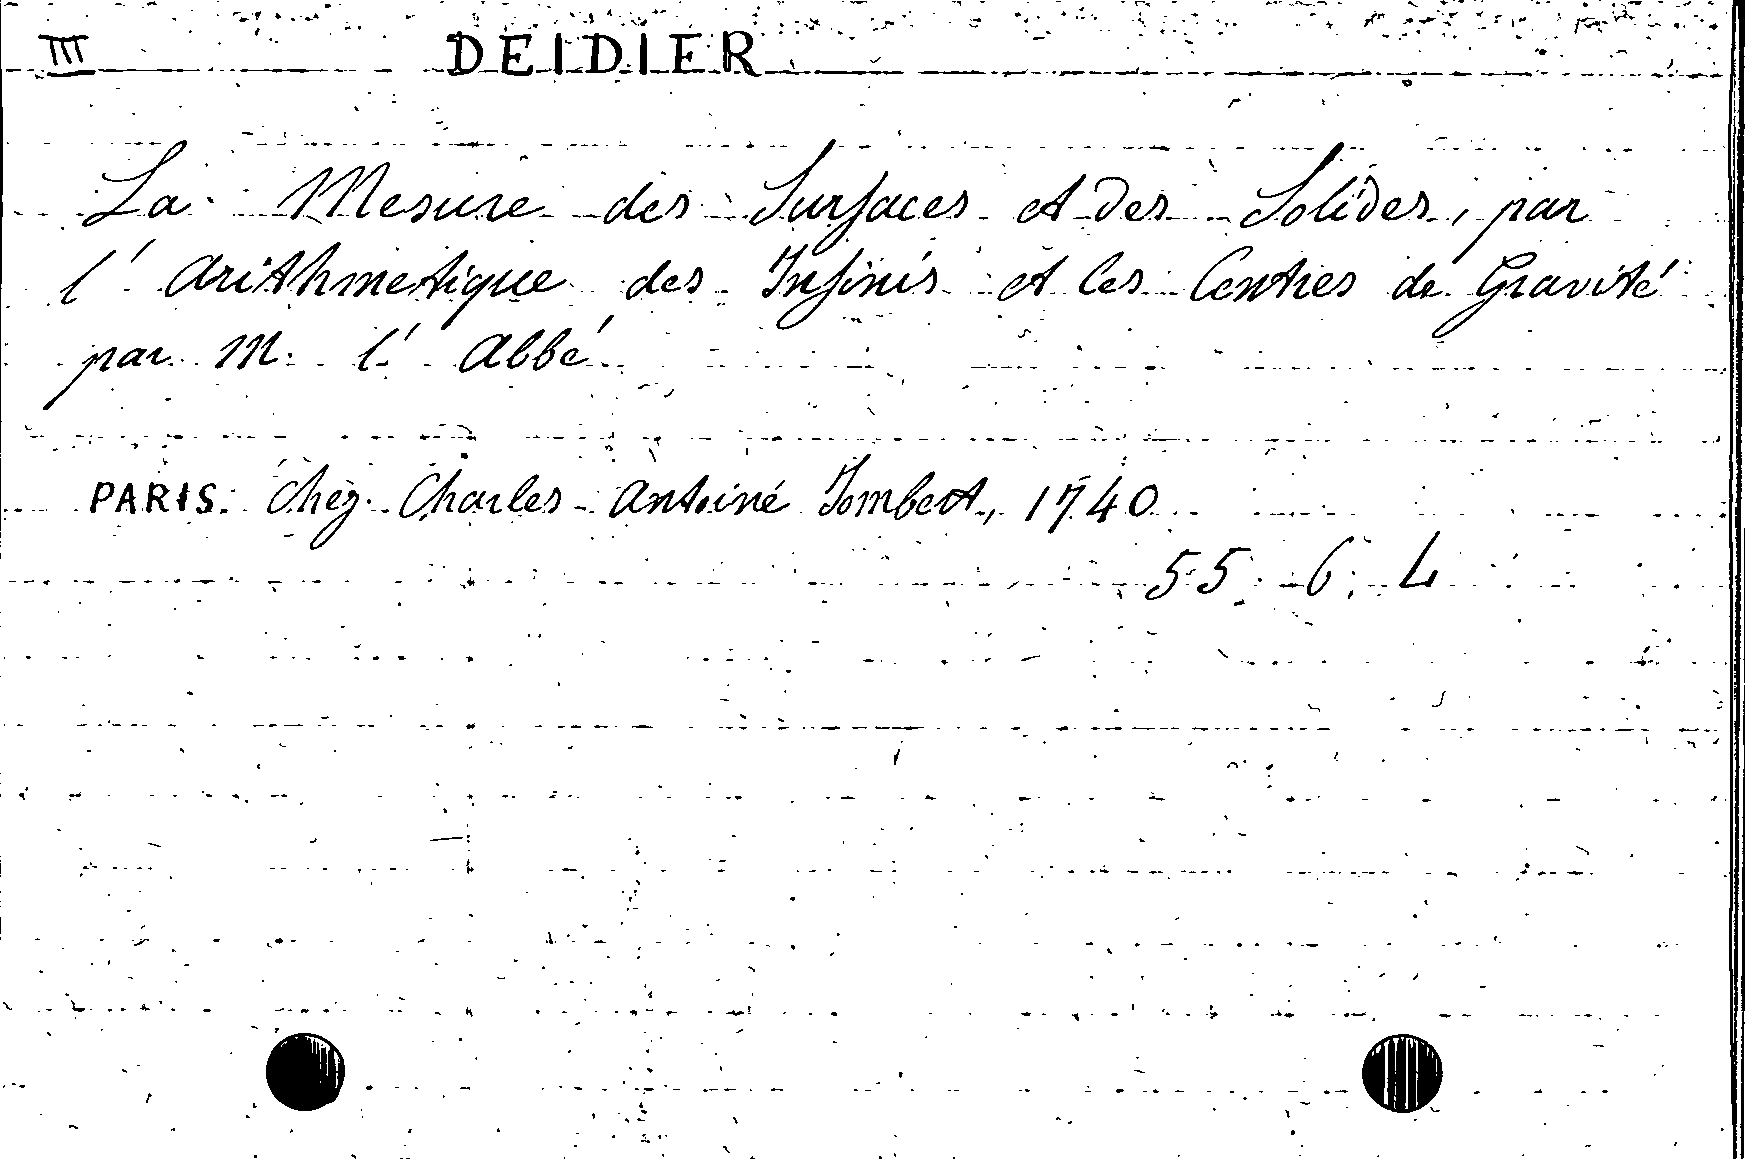 III DEIDIER
La Mesure des Surfaces et des Solides, par
l' Arithmetique des Infinis et les Centres de Gravité
par M. l' Abbé
PARIS. Chez Charles Antoine Jombert, 1740
55. 6. L